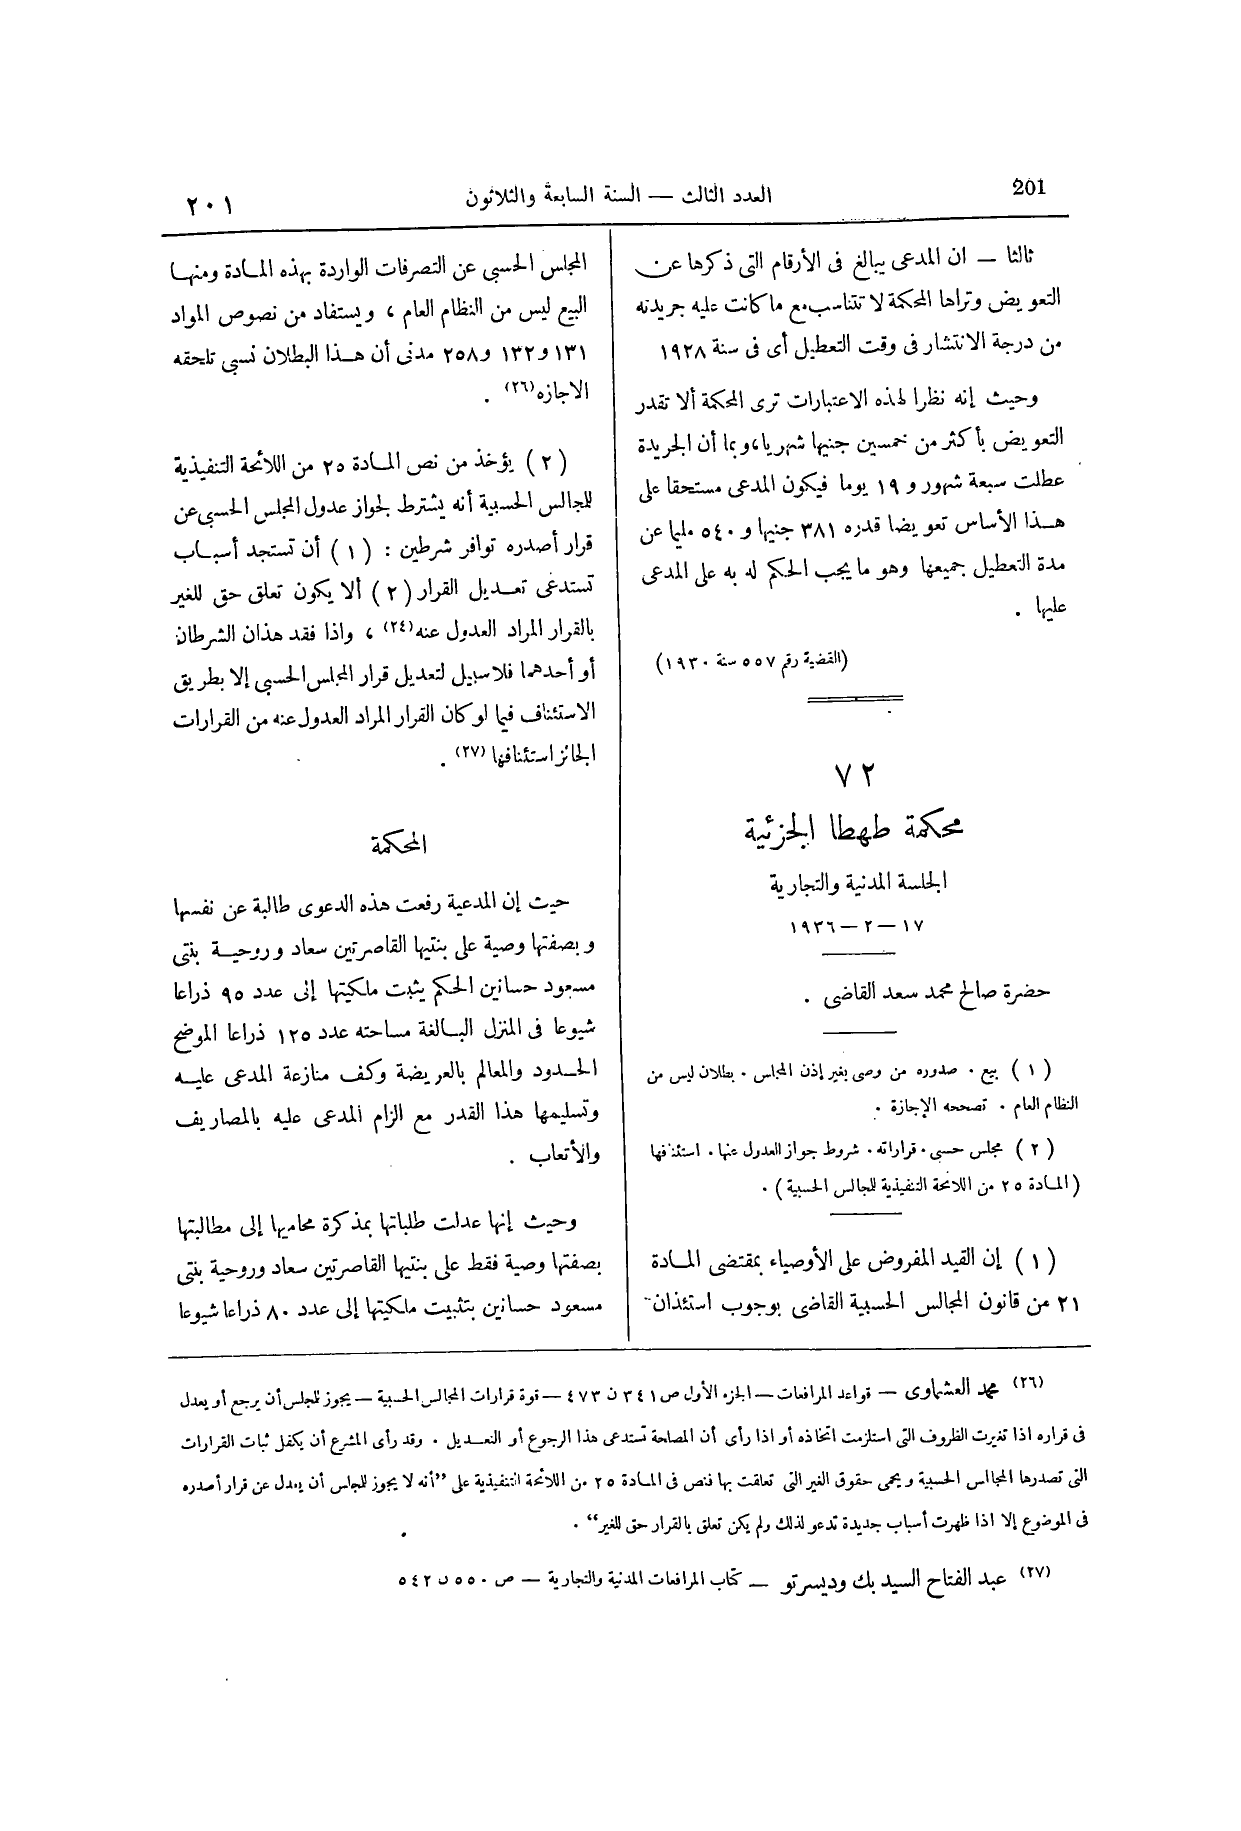 201
العدد الثالث — السنة السابعة والثلاثون
٢٠١
ثالثا — ان المدعى يبالغ فى الأرقام التى ذكرها عن
التعويض وتراها المحكمة لا تتناسب مع ما كانت عليه جريدته
من درجة الانتشار فى وقت التعطيل أى فى سنة ١٩٢٨
وحيث إنه نظرا لهذه الاعتبارات ترى المحكمة ألا تقدر
التعويض بأكثر من خمسين جنيها شهريا، وبما أن الجريدة
عطلت سبعة شهور و ١٩ يوما فيكون المدعى مستحقا على
هذا الأساس تعويضا قدره ٣٨١ جنيها و ٥٤٠ مليما عن
مدة التعطيل جميعها وهو ما يجب الحكم له به على المدعى
عليها .
(القضية رقم ٥٥٧ سنة ١٩٣٠)
٧٢
محكمة طهطا الجزئية
الجلسة المدنية والتجارية
١٧ — ٢ — ١٩٣٦
حضرة صالح محمد سعد القاضى .
(١) بيع . صدوره من وصى بغير إذن المجلس . بطلان ليس من
النظام العام . تصححه الإجازة .
(٢) مجلس حسبى . قراراته . شروط جواز العدول عنها . استئنافها
(المادة ٢٥ من اللائحة التنفيذية للمجالس الحسبية) .
(١) إن القيد المفروض على الأوصياء بمقتضى المادة
٢١ من قانون المجالس الحسبية القاضى بوجوب استئذان
المجلس الحسبى عن التصرفات الواردة بهذه المادة ومنها
البيع ليس من النظام العام ، ويستفاد من نصوص المواد
١٣١ و١٣٢ و٢٥٨ مدنى أن هذا البطلان نسبى تلحقه
الاجازه (٢٦) .
(٢) يؤخذ من نص المادة ٢٥ من اللائحة التنفيذية
للمجالس الحسبية أنه يشترط لجواز عدول المجلس الحسبى عن
قرار أصدره توافر شرطين : (١) أن تستجد أسباب
تستدعى تعديل القرار (٢) ألا يكون تعلق حق للغير
بالقرار المراد العدول عنه (٢٤) ، واذا فقد هذان الشرطان
أو أحدهما فلا سبيل لتعديل قرار المجلس الحسبى إلا بطريق
الاستئناف فيما لو كان القرار المراد العدول عنه من القرارات
الجائز استئنافها (٢٧) .
المحكمة
حيث إن المدعية رفعت هذه الدعوى طالبة عن نفسها
وبصفتها وصية على بنتيها القاصرتين سعاد وروحية بنتى
مسعود حسانين الحكم يثبت ملكيتها إلى عدد ٩٥ ذراعا
شيوعا فى المنزل البالغة مساحته عدد ١٢٥ ذراعا الموضح
الحدود والمعالم بالعريضة وكف منازعة المدعى عليه
وتسليمها هذا القدر مع الزام المدعى عليه بالمصاريف
والأتعاب .
وحيث إنها عدلت طلباتها بمذكرة محاميها إلى مطالبتها
بصفتها وصية فقط على بنتيها القاصرتين سعاد وروحية بنتى
مسعود حسانين بتثبيت ملكيتها إلى عدد ٨٠ ذراعا شيوعا
(٢٦) محمد العشماوى — قواعد المرافعات — الجزء الأول ص ٣٤١ ن ٤٧٣ — قوة قرارات المجالس الحسبية — يجوز للمجلس أن يرجع أو يعدل
فى قراره اذا تغيرت الظروف التى استلزمت اتخاذه أو اذا رأى أن المصلحة تستدعى هذا الرجوع أو التعديل . وقد رأى المشرع أن يكفل ثبات القرارات
التى تصدرها المجالس الحسبية ويحمى حقوق الغير التى تعلقت بها فنص فى المادة ٢٥ من اللائحة التنفيذية على "أنه لا يجوز للمجلس أن يعدل عن قرار أصدره
فى الموضوع إلا اذا ظهرت أسباب جديدة تدعو لذلك ولم يكن تعلق بالقرار حق للغير" .
(٢٧) عبد الفتاح السيد بك وديسرتو — كتاب المرافعات المدنية والتجارية — ص ٥٥٠ ن ٥٤٢